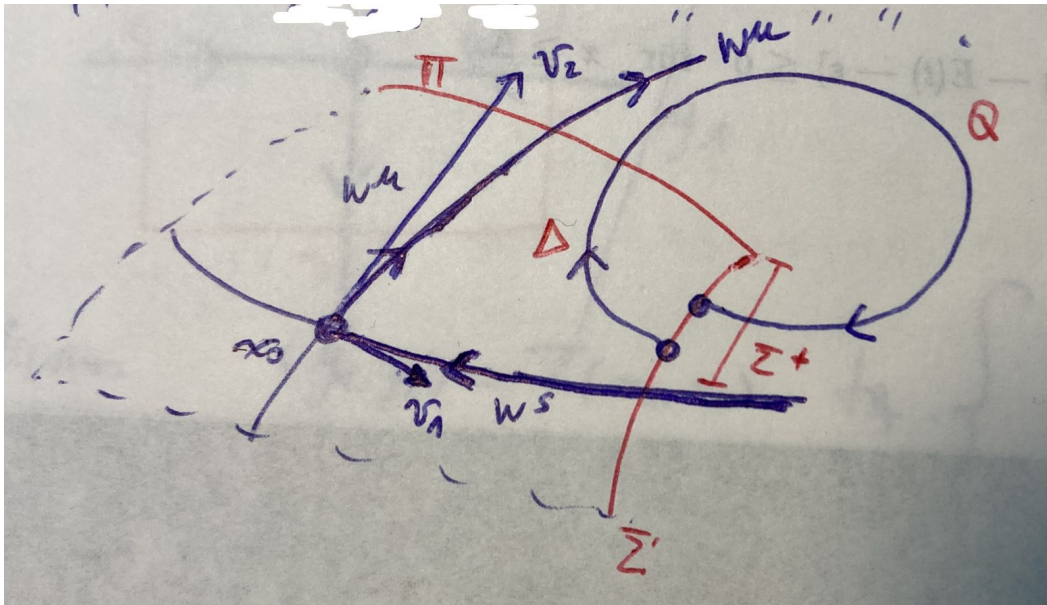 Π
v₂
Wᵘ
Q
Wᵘ
Δ
x₀
Σ⁺
v₁
Wˢ
Σ